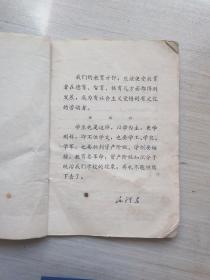 我们的教育方针，应该使受教育
者在德育、智育、体育几方面都得到
发展，成为有社会主义觉悟的有文化
的劳动者。
学生也是这样，以学为主，兼学
别样，即不但学文，也要学工、学农、
学军，也要批判资产阶级。学制要缩
短，教育要革命，资产阶级知识分子
统治我们学校的现象，再也不能继续
下去了。
毛泽东